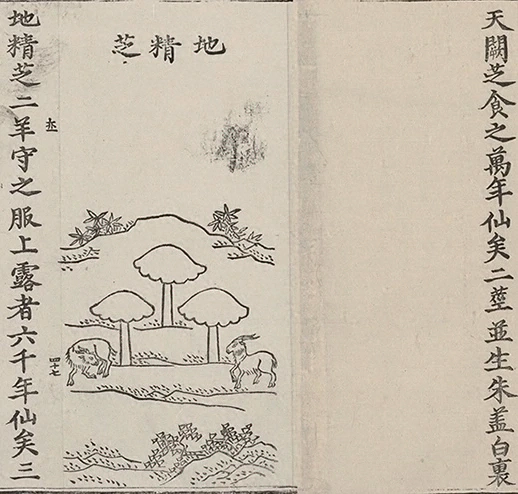 天闕芝食之萬年仙矣二莖並生朱盖白裏
地精芝
四十七
地精芝二羊守之服上露者六千年仙矣三